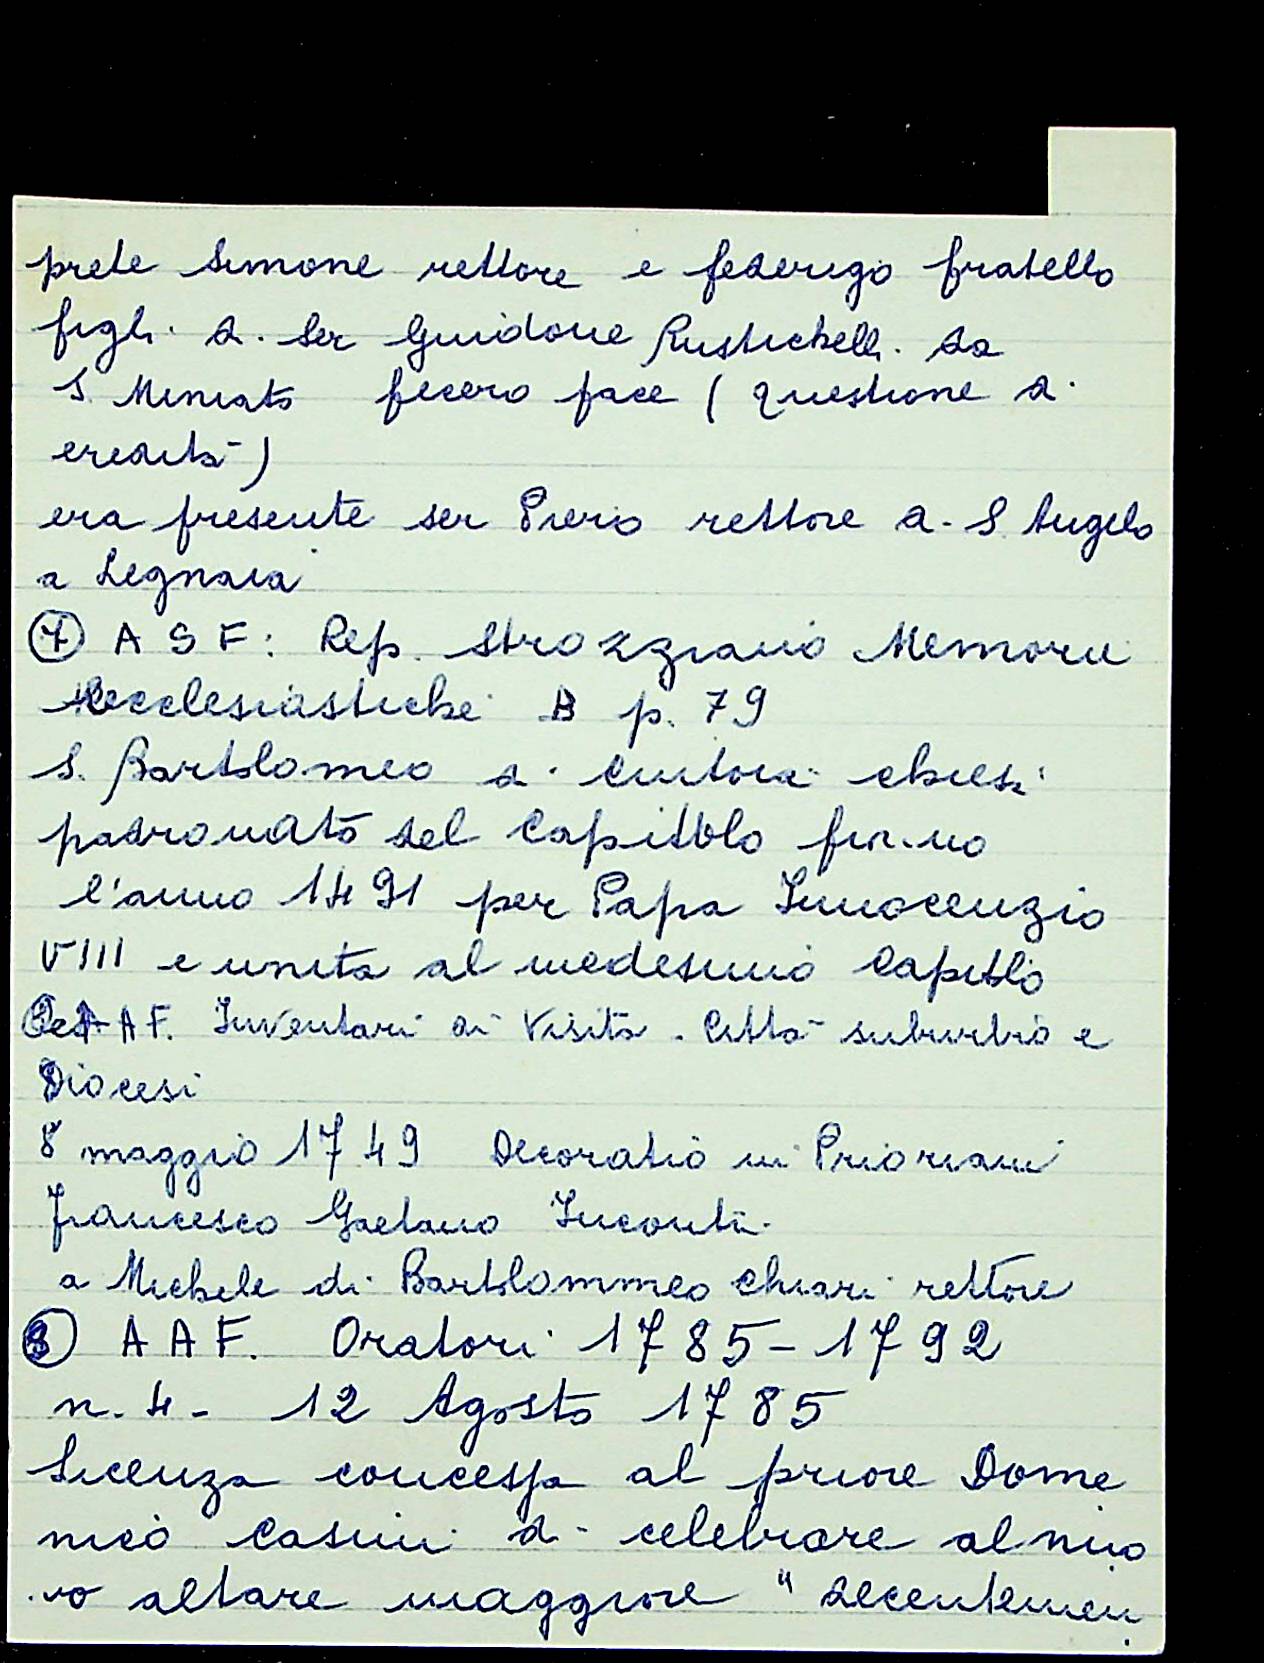 prete Simone rettore e federigo fratello
figli di Ser Guidone Rustichelli da
S. Miniato fecero pace ( questione di
eredità )
era presente ser Piero rettore di S. Angelo
a Legnaia
7 A S F: Rep. Strozziano Memorie
Ecclesiastiche B p. 79
S. Bartolomeo a Cintoia chiesa
padronato del Capitolo fin.no
l'anno 1491 per Papa Innocenzio
VIII e unita al medesimo Capitolo
A F. Inventari di Visita. Città suburbio e
Diocesi
8 maggio 1749 Decoratio in Prioriam
Francesco Gaetano Incontri
a Michele di Bartolommeo Chiari rettore
8 A A F. Oratori 1785 - 1792
n. 4 - 12 Agosto 1785
Licenza concessa al priore Dome
nico Casini di celebrare al nuo
vo altare maggiore " decentemen